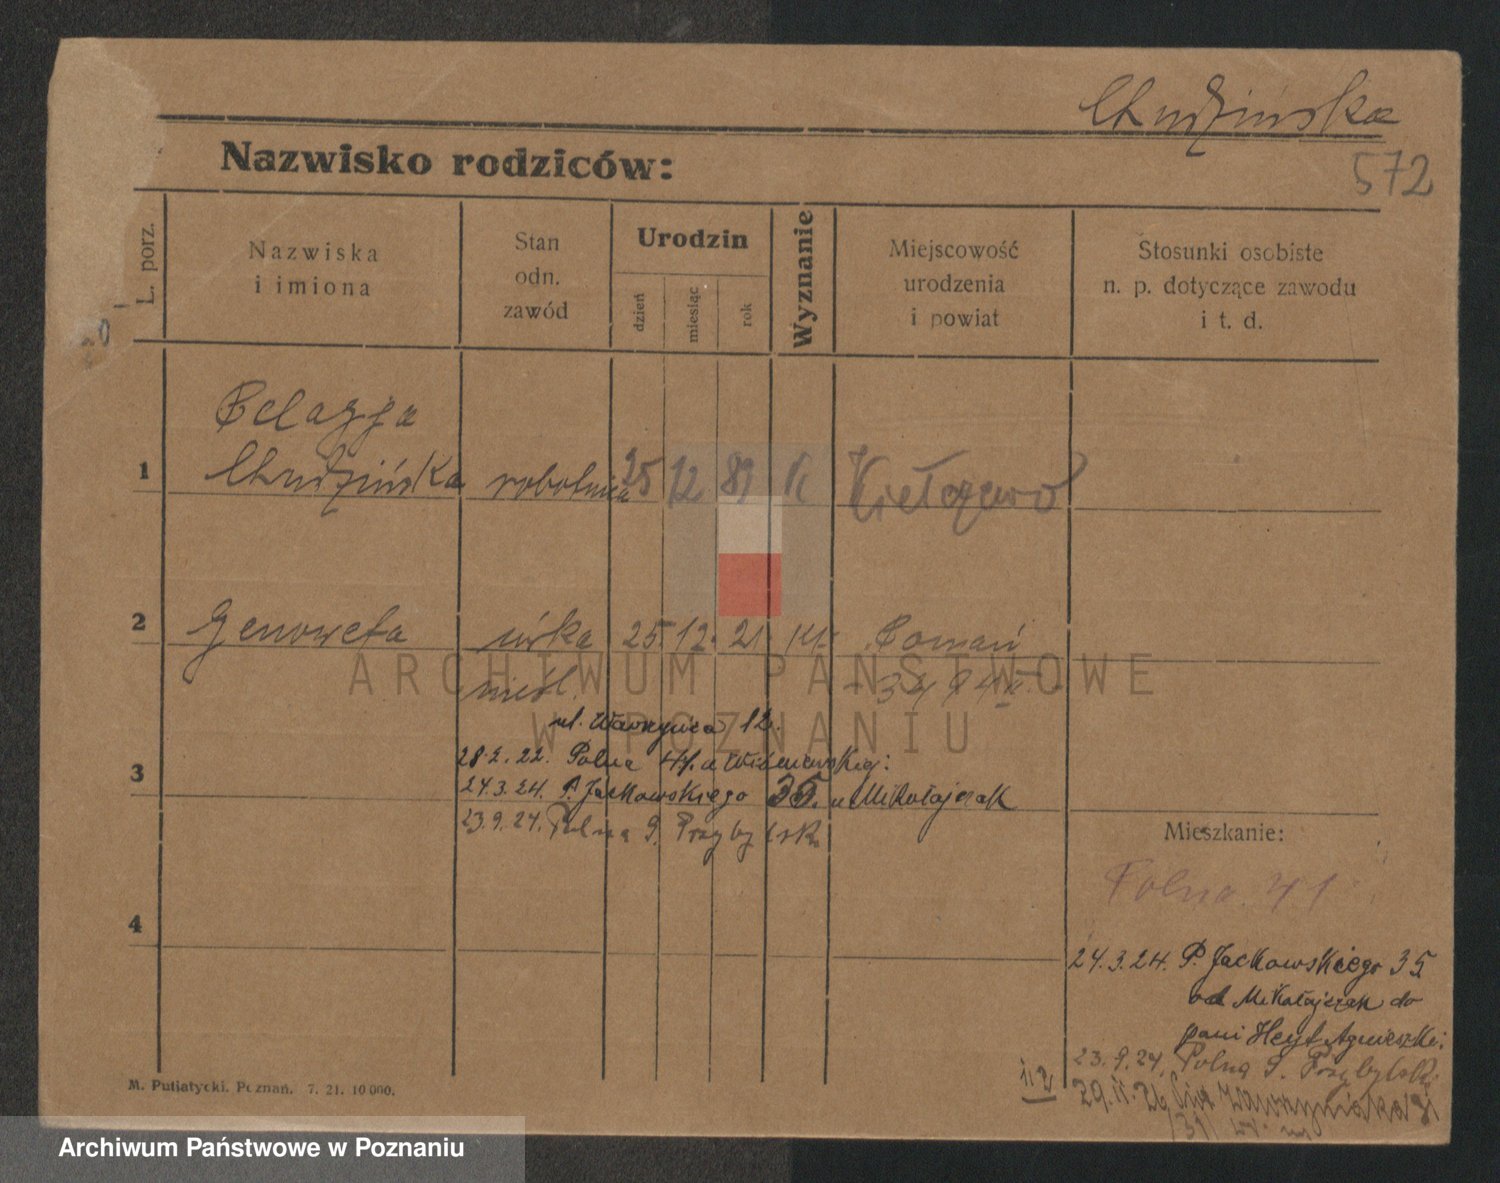 Chudzińska
572
Nazwisko rodziców:
L. porz.
Nazwiska
i imiona
Stan
odn.
zawód
Urodzin
dzień
miesiąc
rok
Wyznanie
Miejscowość
urodzenia
i powiat
Stosunki osobiste
n. p. dotyczące zawodu
i t. d.
1
Pelagja
Chudzińska robotnica 25 12 89 k Kiełczewo
2
Genowefa córka 25. 12. 21. kt. Poznań
nieśl.
ARCHIWUM PAŃSTWOWE
W POZNANIU
ul. Wawrzyńca 12.
28.2.22. Polna 41. u
3
24.3.24. P. Jackowskiego 35. u Mikołajczak
23.9.24. Polna 9. Przybylsk
Mieszkanie:
Polna 41
4
24.3.24. P. Jackowskiego 35
od Mikołajczak do
pani Heyt Agnieszki
23.9.24. Polna 9. Przybylski
M. Putiatycki. Poznań. 7. 21. 10 000.
Archiwum Państwowe w Poznaniu